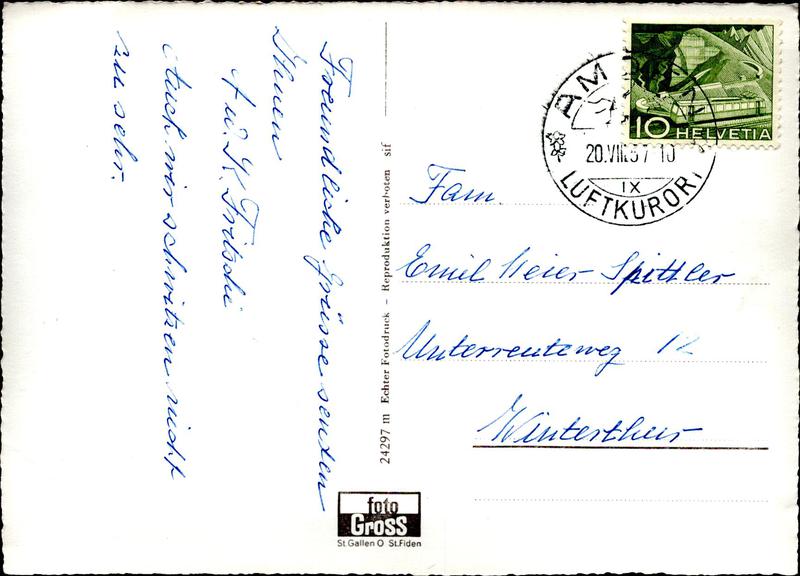 Freundliche Grüsse senden
Ihnen
A u. K. Fritschi
Auch wir schwitzen nicht
zu sehr.
24297 m Echter Fotodruck - Reproduktion verboten sif
foto
Gross
St.Gallen O St.Fiden
AM
20.VIII.57 10
IX
LUFTKURORT
10 HELVETIA
Fam.
Emil Meier-Spittler
Unterreuteweg 12
Winterthur